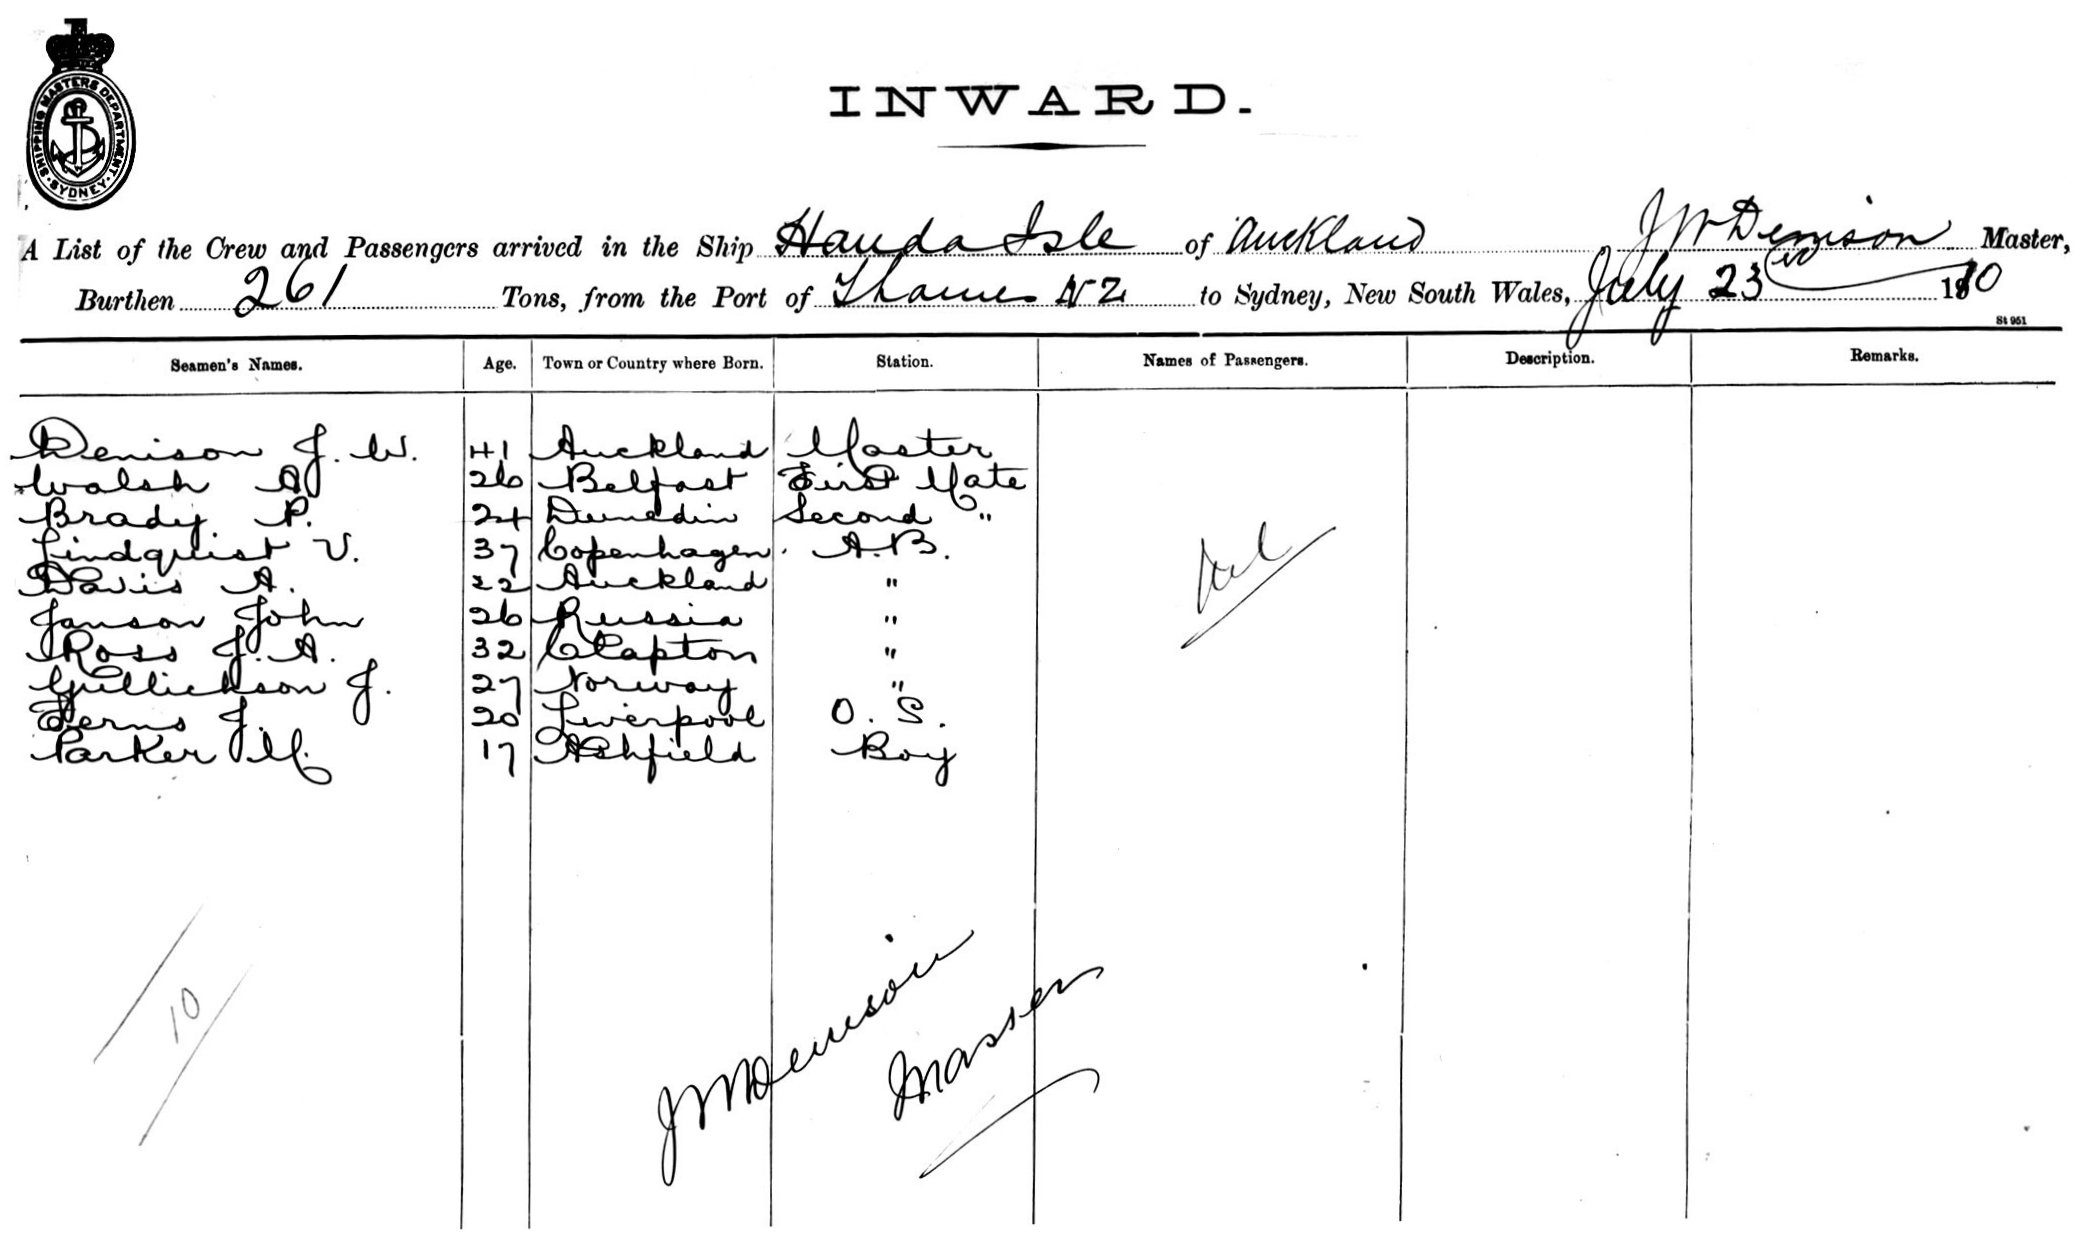 SHIPPING MASTERS DEPARTMENT. SYDNEY.
INWARD.
A List of the Crew and Passengers arrived in the Ship Handa Isle of Auckland J W Denison Master,
Burthen 261 Tons, from the Port of Thames NZ to Sydney, New South Wales, July 23rd 1910
St 951
Seamen's Names. Age. Town or Country where Born. Station. Names of Passengers. Description. Remarks.
Denison J. W. 41 Auckland Master
Walsh A 26 Belfast First Mate
Brady P. 24 Dunedin Second "
Lindquist V. 37 Copenhagen. A.B.
Davis A. 22 Auckland "
Janson John 26 Russia "
Ross J. A. 32 Clapton "
Gullickson J. 27 Norway "
Ferns J. 20 Liverpool O. S.
Parker M. 17 Ashfield Boy
Nil
10
J W Denison
Master